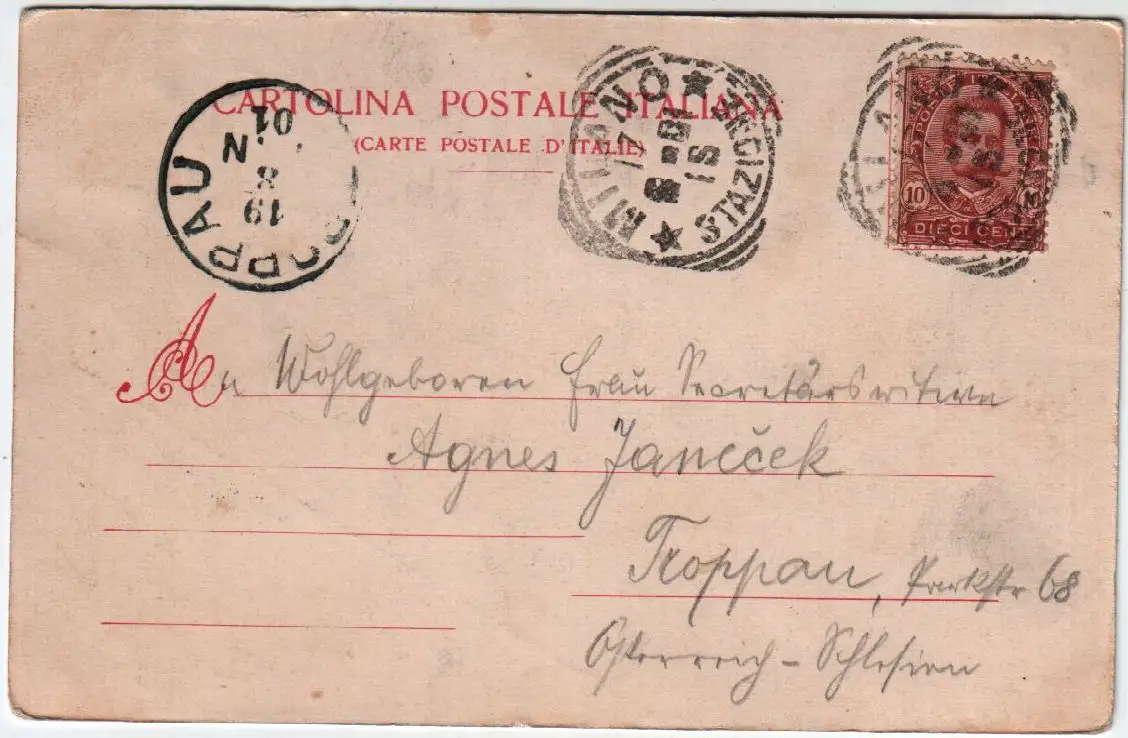 CARTOLINA POSTALE ITALIANA
(CARTE POSTALE D'ITALIE)
TROPPAU
19
8
01
N
MILANO
STAZIONE
17
8-01
1S
POSTE ITALIANE
10
DIECI CENT
An Wohlgeboren Frau Secretärswitwe
Agnes Janeček
Troppau, Parkstr 68
Österreich - Schlesien